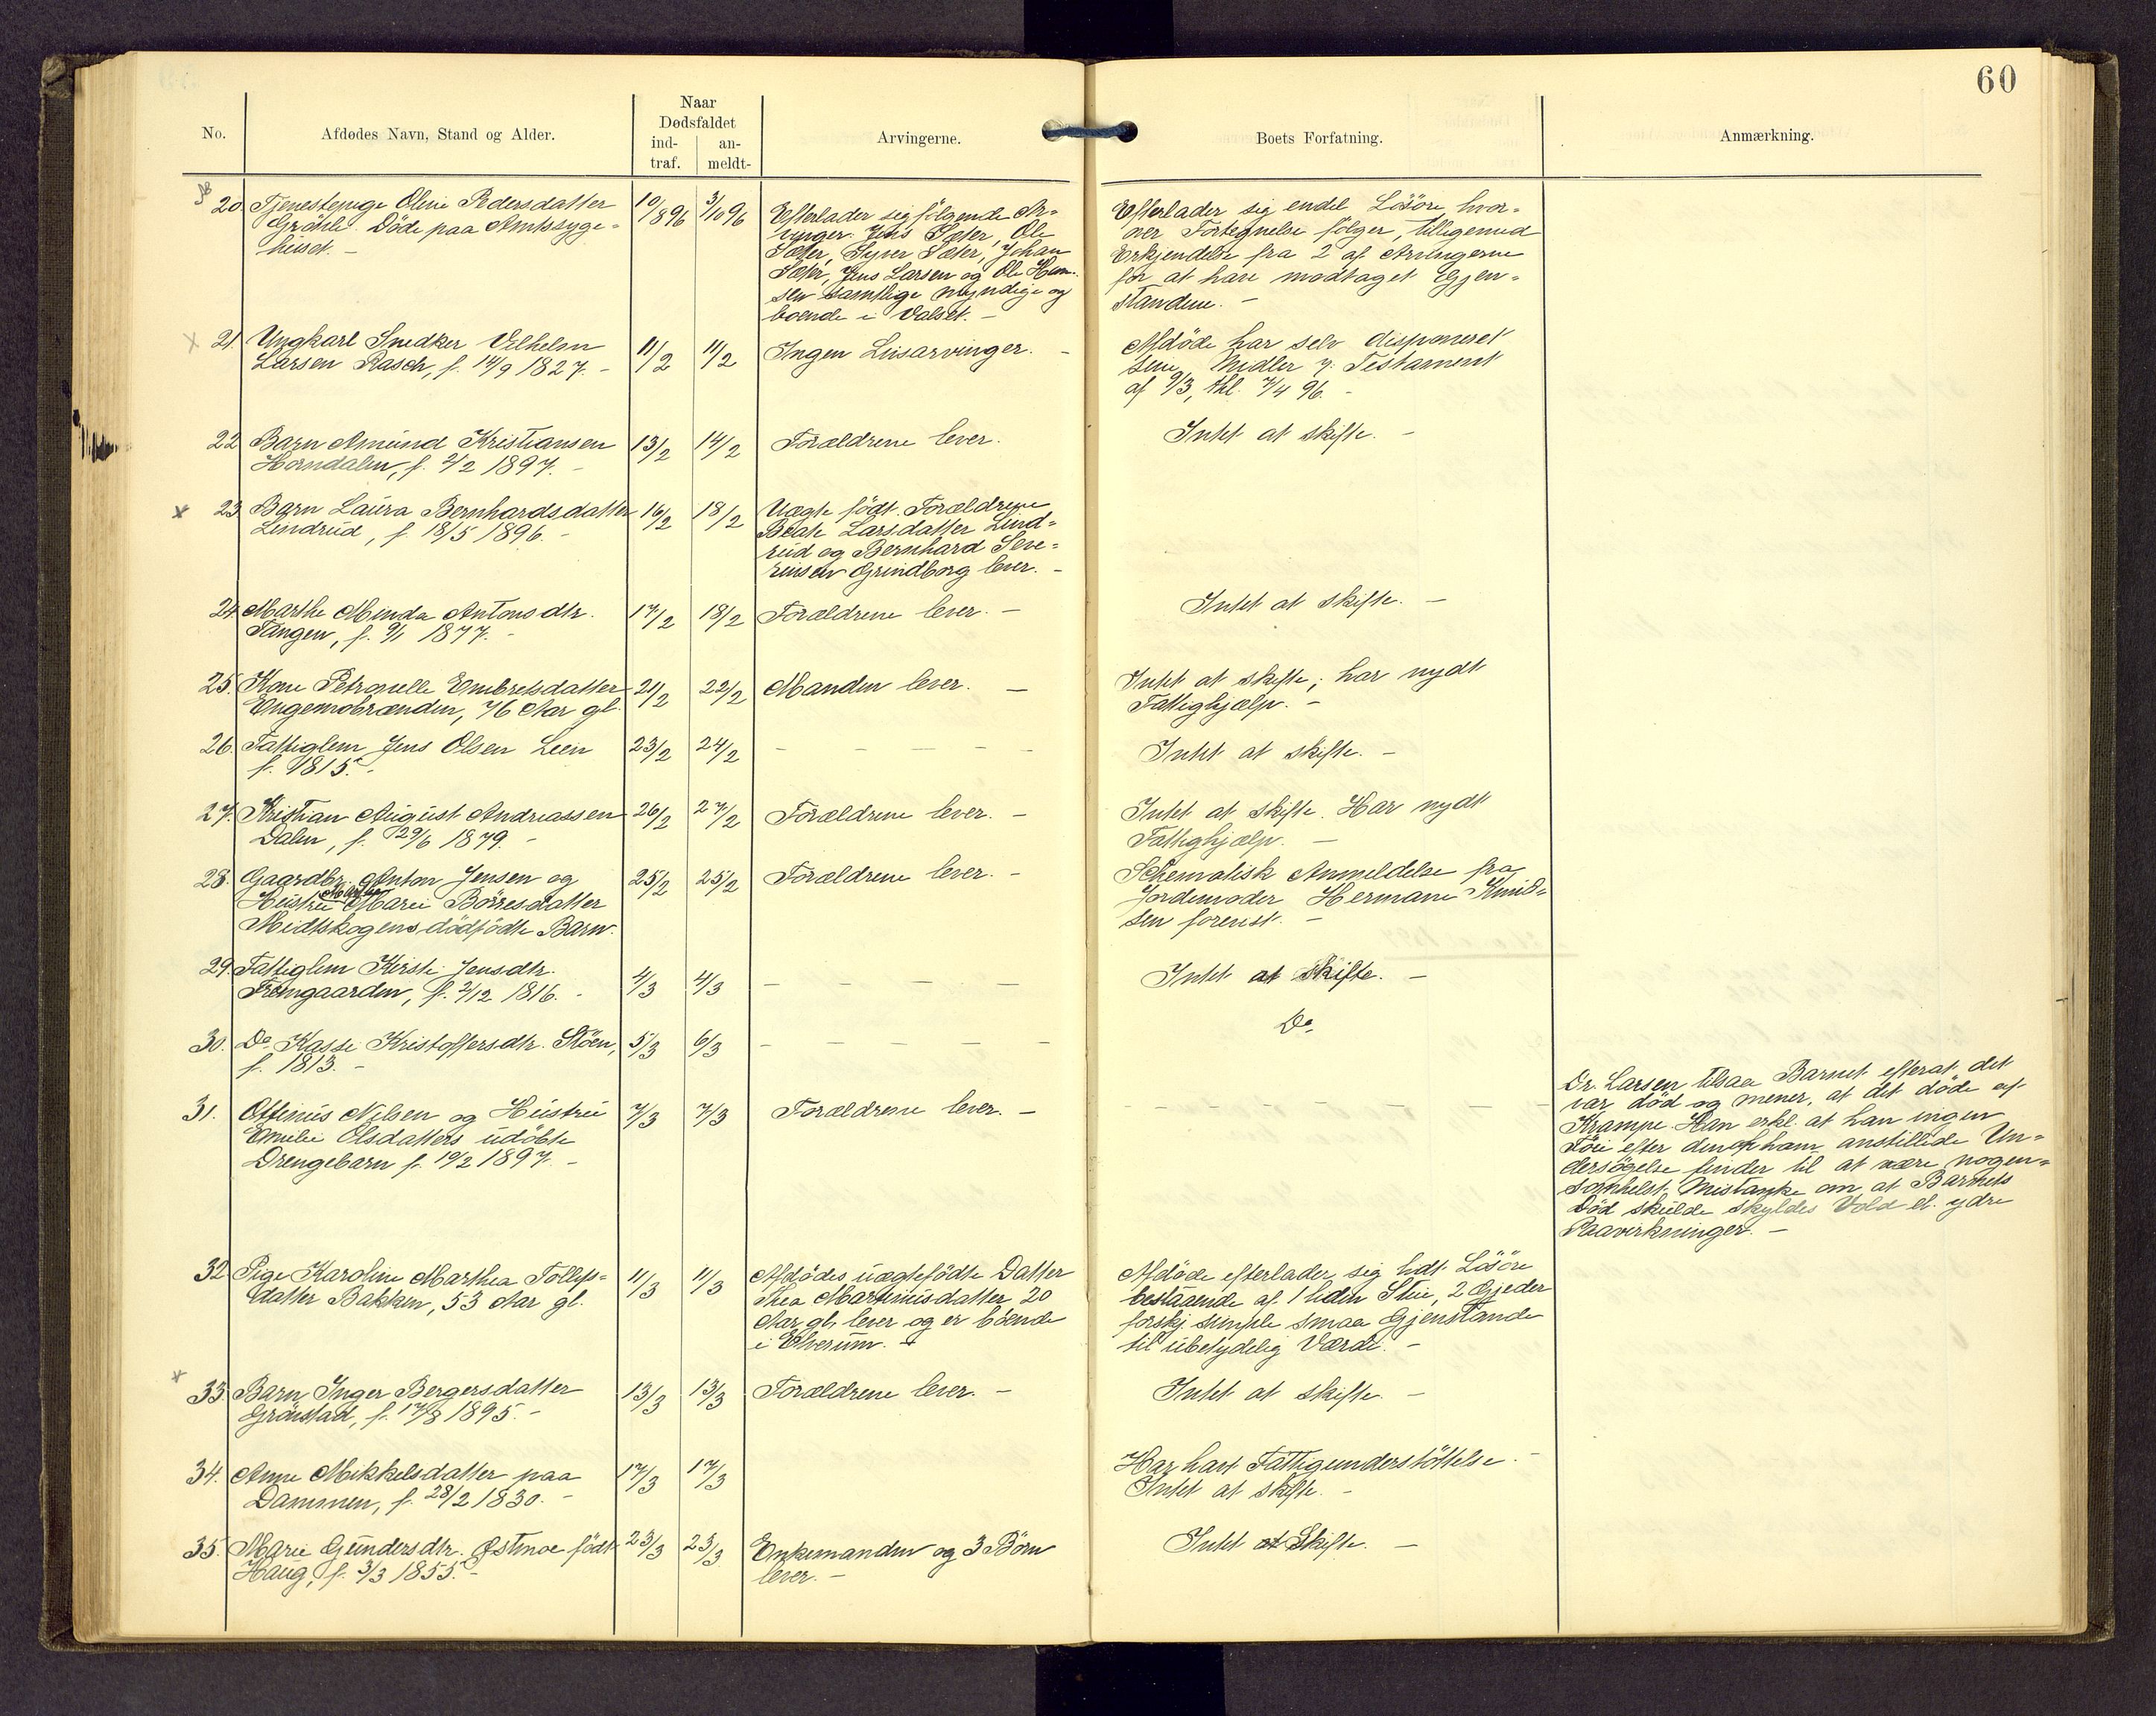 60
No.
Afdødes Navn, Stand og Alder.
Naar
Dødsfaldet
ind-
traf.
an-
meldt-
Arvingerne.
Boets Forfatning.
Anmærkning.
20 Tjenestepige Oline Pedersdatter 10/8 96 3/10 96 Efterlader sig følgende Ar-
Död paa Amtssyge-
huset. -
vinger: Jens Sæter, Ole
Sæter, Syver Sæter, Johan
Sæter, Jens Larsen og Ole Han-
sen samtlige myndige og
boende i Valset. -
Efterlader sig endel Lösöre hvor-
over Fortegnelse følger, tilligemed
Erkjendelse fra 2 af Arvingerne
for at have modtaget Gjen-
standene. -
21. Ungkarl Snedker Vilhelm 11/2 11/2 Ingen Livsarvinger. -
Larsen Rasch, f. 14/9 1827. -
Afdöde har selv disponeret
sine Midler v. Testament
af 9/3, thl. 7/4 96. -
22 Barn Amund Kristiansen 13/2 14/2 Forældrene lever. Intet at skifte. -
Horndalen, f. 2/2 1897. -
23 Barn Laura Bernhardsdatter 16/2 18/2 Uægte född. Forældrene
Lindrud, f. 18/5 1896. -
Beate Larsdatter Lind-
rud og Bernhard Seve-
rinsen Grindborg lever. -
24. Marthe Minda Antonsdtr. 17/2 18/2 Forældrene lever. - Intet at skifte. -
Tangen, f. 9/1 1877. -
25. Kone Petronelle Embretsdatter 21/2 22/2 Manden lever. - Intet at skifte; har nydt
Engemobrænden, 76 Aar gl. Fattighjælp. -
26. Fattiglem Jens Olsen Leen 23/2 24/2 - - - - - Intet at skifte. -
f. 1815. -
27. Kristian August Andreassen 26/2 27/2 Forældrene lever. - Intet at skifte. Har nydt
Dalen, f. 29/6 1879. - Fattighjælp. -
28. Gaardbr. Anton Jensen og 25/2 25/2 Forældrene lever. - Schematisk Anmeldelse fra
Hustru Marie Börresdatter Jordemoder Hermane Knud-
Midtskogens dödfödte Barn. sen forevist. -
29. Fattiglem Kirsti Jensdtr. 4/3 4/3 - - - - - Intet at skifte. -
Fremgaarden, f. 2/12 1816. -
30. Do Kasse Kristoffersdtr. Stöen, 5/3 6/3 - - - - - Do
f. 1813. -
31. Ottinius Nilsen og Hustru 7/3 7/3 Forældrene lever. - - - - - - - -
Emilie Olsdatters udöbte
Drengebarn f. 19/2 1897. -
Dr. Larsen tilsaa Barnet efterat det
var död og mener, at det döde af
Krampe. Han erkl. at han ingen
Föie efter den af ham anstillede Un-
dersögelse finder til at være nogen-
somhelst Mistanke om at Barnets
Död skulde skyldes Vold el. ydre
Paavirkninger. -
32 Pige Karoline Marthea Tollefs- 11/3 11/3 Afdödes uægtefödte Datter
datter Bakken, 53 Aar gl.
Thea Martinusdatter 20
Aar gl. lever og er boende
i Elverum. -
Afdöde efterlader sig lidt Lösöre
bestaaende af 1 liden Stue, 2 Gjeder
forskj. simple smaa Gjenstande
til ubetydelig Værdi. -
33. Barn Inger Bergersdatter 13/3 13/3 Forældrene lever. - Intet at skifte. -
Grönstad, f. 17/8 1895. -
34. Anne Mikkelsdatter paa 17/3 17/3 Har havt Fattigunderstöttelse. -
Dammen, f. 28/2 1830. - Intet at skifte. -
35. Marie Gundersdtr. Østmoe född 23/3 23/3 Enkemanden og 3 Börn Intet at Skifte. -
Haug, f. 3/3 1855. - lever. -